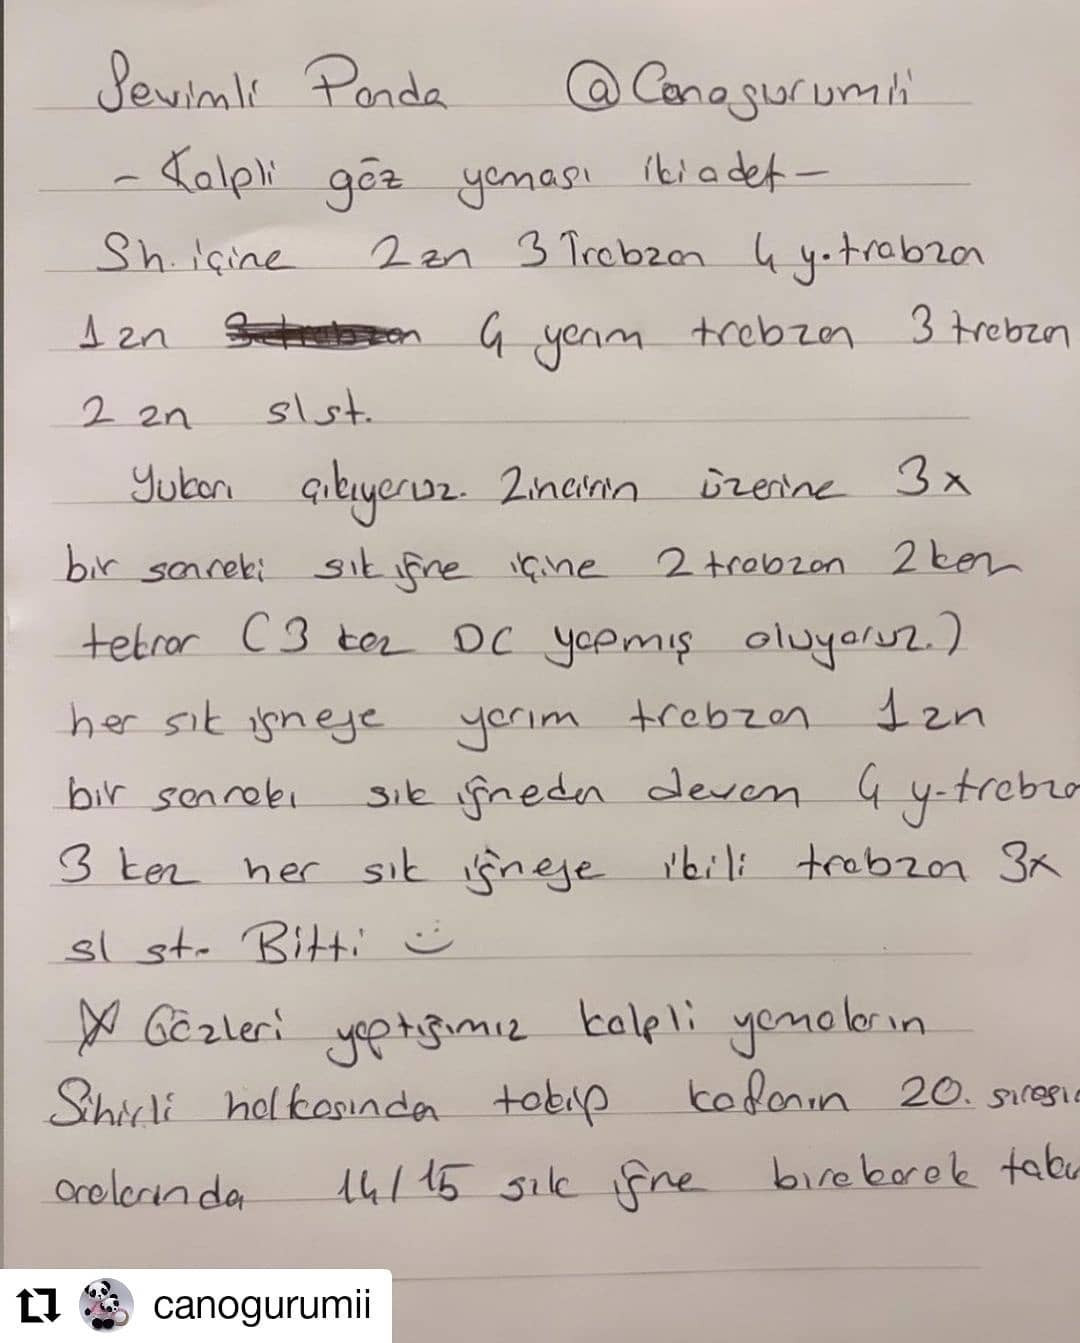 Sevimli Panda @Canogurumii
- Kalpli göz yaması iki adet -
Sh. içine 2 zn 3 Trabzan 4 y.trabzan
1 zn 4 yarım trabzan 3 trabzan
2 zn sl st.
Yukarı çıkıyoruz. Zincirin üzerine 3x
bir sonraki sık iğne içine 2 trabzan 2 kez
tekrar (3 kez DC yapmış oluyoruz.)
her sık iğneye yarım trabzan 1 zn
bir sonraki sık iğneden devam 4 y-trabza
3 kez her sık iğneye ikili trabzan 3x
sl st. Bitti :)
Gözleri yaptığımız kalpli yamaların
Sihirli halkasından takıp kafanın 20. sırası
aralarından 14/15 sık iğne bırakarak takı
canogurumii